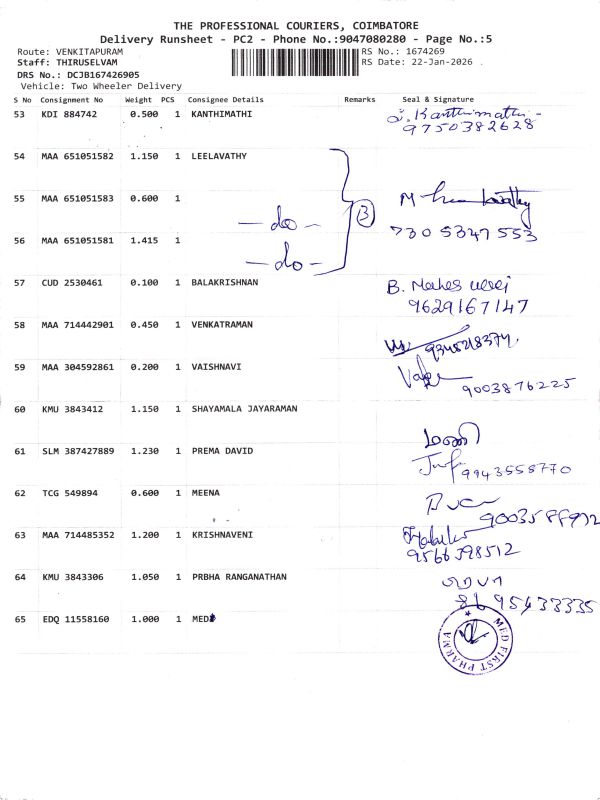 THE PROFESSIONAL COURIERS, COIMBATORE
Delivery Runsheet - PC2 - Phone No.:9047080280 - Page No.:5
Route: VENKITAPURAM RS No.: 1674269
Staff: THIRUSELVAM RS Date: 22-Jan-2026
DRS No.: DCJB167426905
Vehicle: Two Wheeler Delivery
S No Consignment No Weight PCS Consignee Details Remarks Seal & Signature
53 KDI 884742 0.500 1 KANTHIMATHI Kanthimathi
9750382628
54 MAA 651051582 1.150 1 LEELAVATHY
55 MAA 651051583 0.600 1 - do - 3 M
7305347553
56 MAA 651051581 1.415 1 - do -
57 CUD 2530461 0.100 1 BALAKRISHNAN B.
9629167147
58 MAA 714442901 0.450 1 VENKATRAMAN
59 MAA 304592861 0.200 1 VAISHNAVI
9003876225
60 KMU 3843412 1.150 1 SHAYAMALA JAYARAMAN
61 SLM 387427889 1.230 1 PREMA DAVID
9943558770
62 TCG 549894 0.600 1 MEENA
63 MAA 714485352 1.200 1 KRISHNAVENI
9566398512
64 KMU 3843306 1.050 1 PRBHA RANGANATHAN
65 EDQ 11558160 1.000 1 MED
MED FIRST PHARMA